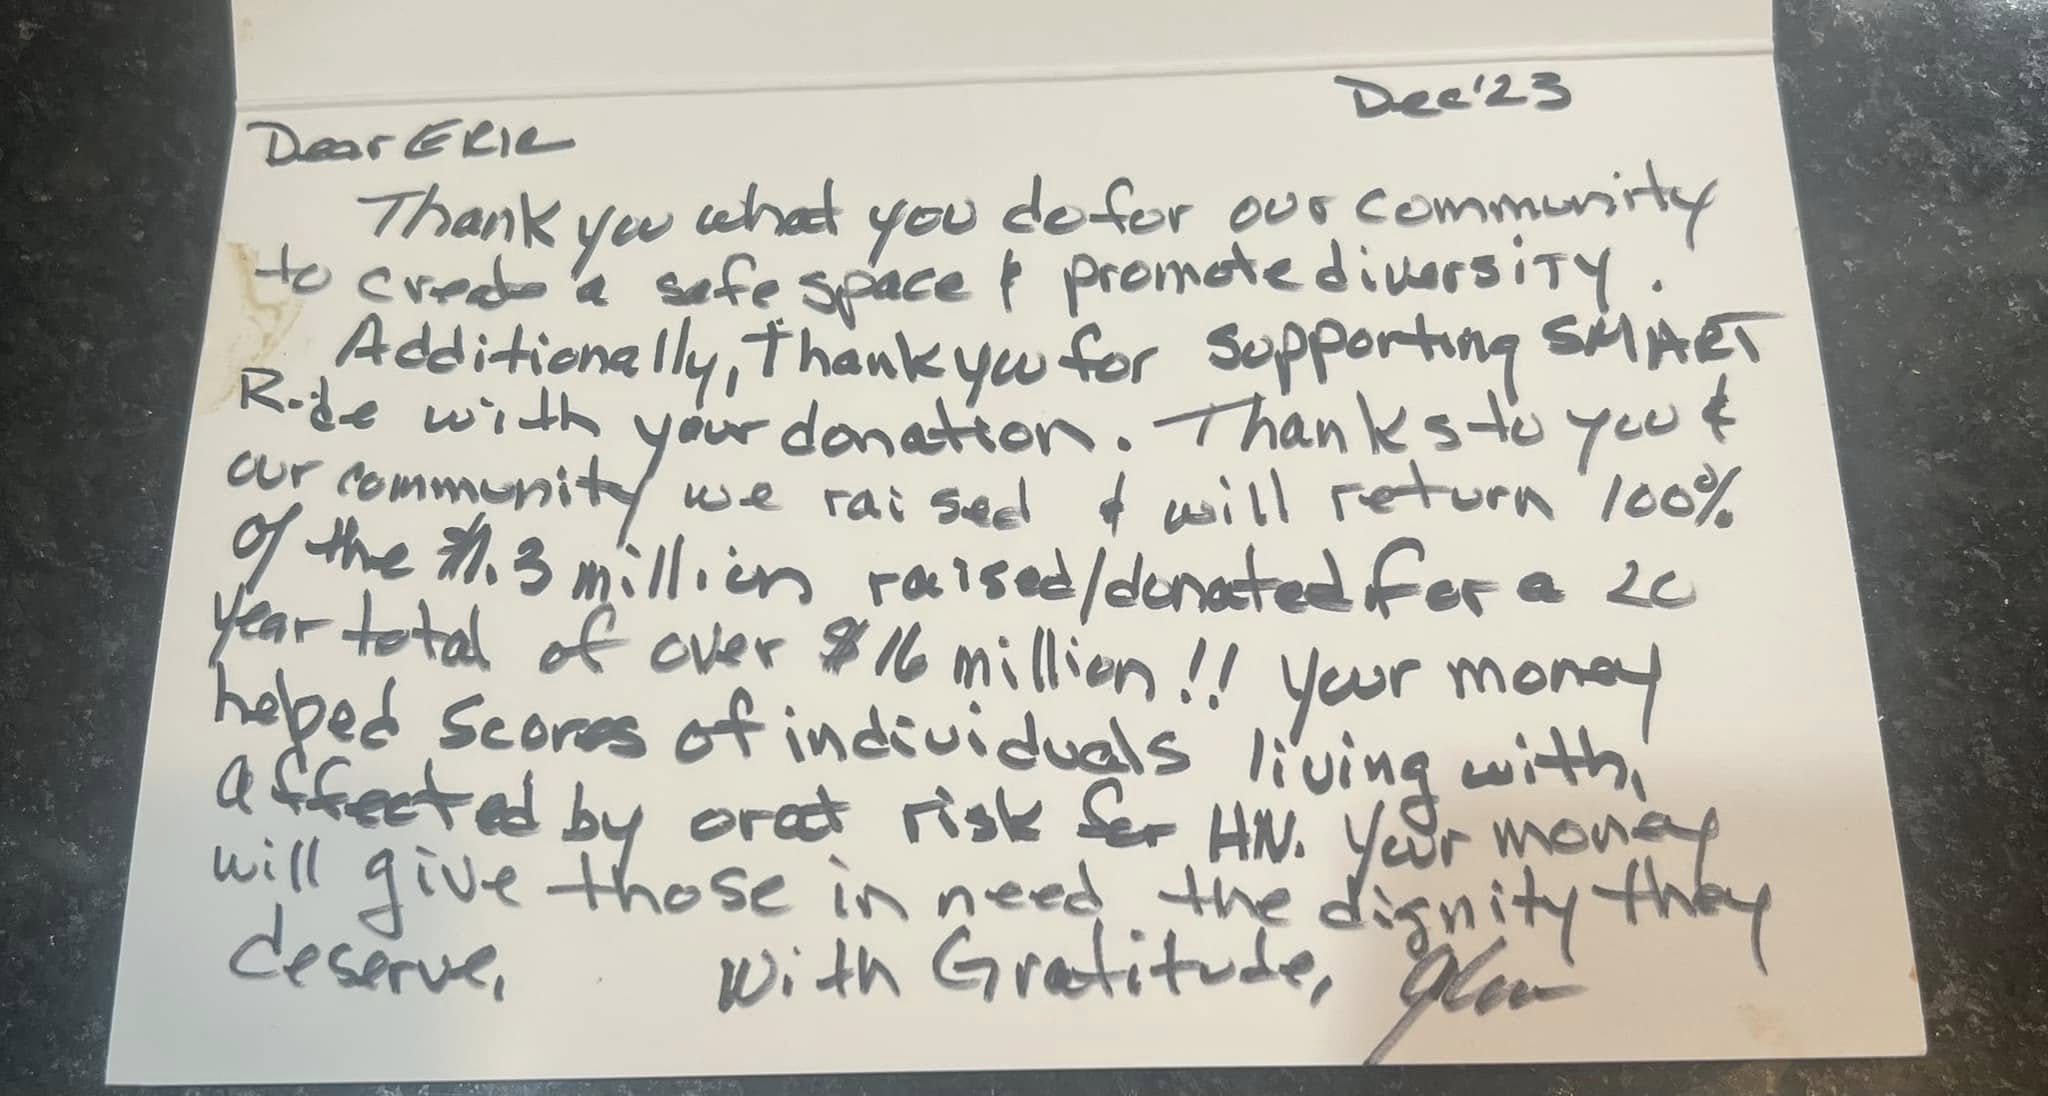 Dec'23
Dear ERIC
Thank you what you do for our community
to create a safe space & promote diversity.
Additionally, Thank you for supporting SMART
Ride with your donation. Thanks to you &
our community we raised & will return 100%
of the $1.3 million raised/donated for a 20
year total of over $16 million!! Your money
helped scores of individuals living with,
affected by or at risk for HIV. Your money
will give those in need the dignity they
deserve.
With Gratitude, Glen